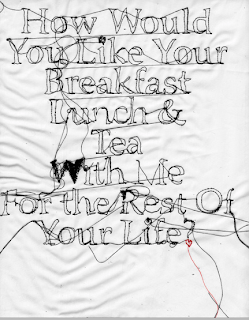 How Would
You Like Your
Breakfast
Lunch &
Tea
With Me
For the Rest Of
Your Life?